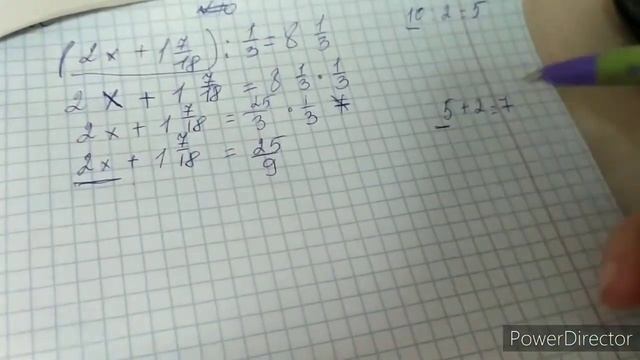 (2x + 1 7/18) : 1/3 = 8 1/3
2x + 1 7/18 = 8 1/3 · 1/3
2x + 1 7/18 = 25/3 · 1/3
2x + 1 7/18 = 25/9
10 : 2 = 5
5 + 2 = 7
PowerDirector